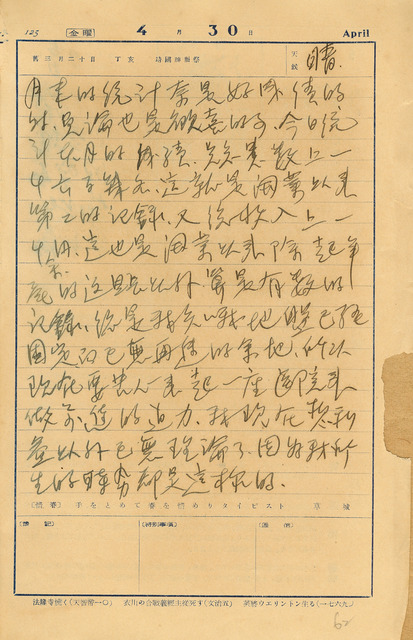 123 金曜 4月30日 April
舊三月二十日 丁亥 靖國神社祭 天候 晴
月末的統計算是好成績的
時,無論也是歡喜的了。今日統
計本月的成績,患者數上一
千六百餘名,這就是開業以來
第二的記錄。又總收入上一
千円,這也是開業以來除起年
底的這點以外,算是有數的
記錄,總是我地盤已經
固定而已無再進的余地,所以
現在要人來起一座醫院來
做前進的迫力,我現在利
益以外已無理論了,因為我所
生的時勢却是這樣的。
(惜春) 手をとめて春を惜めりタイピスト 草城
〔特別事項〕 〔通信〕
法隆寺焼く(天智帝一〇) 衣川の合戰義經主從死す(文治五) 英將ウエリントン生る(一七六九)
62